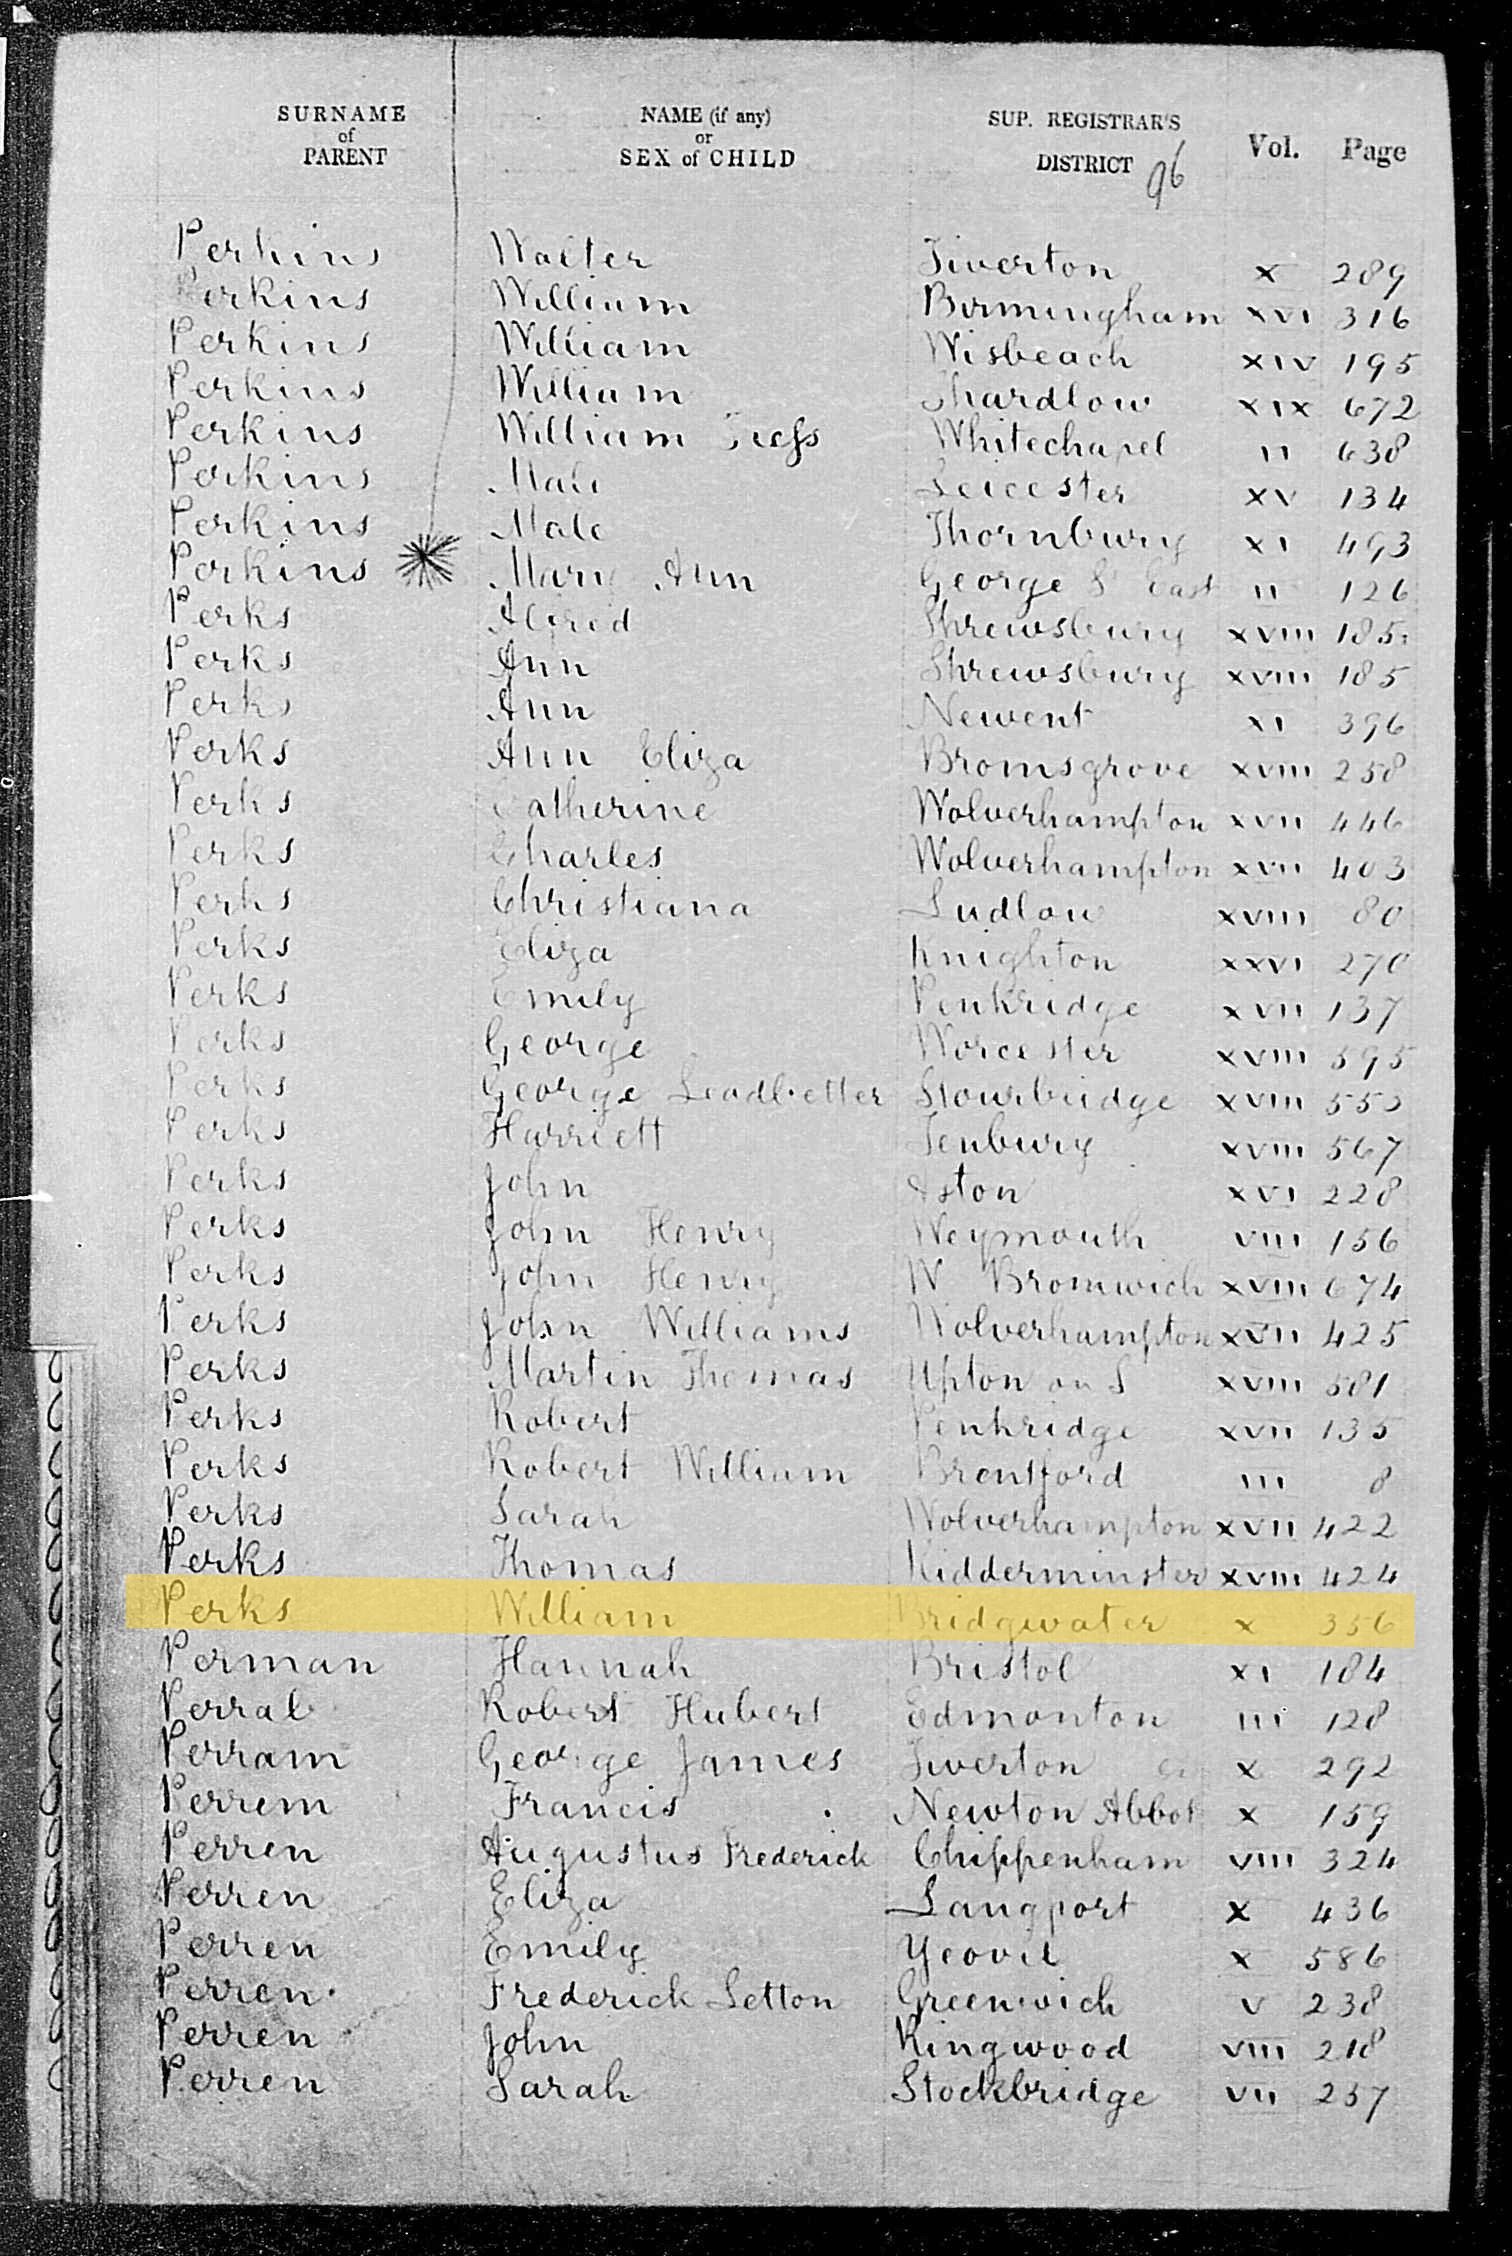 SURNAME of PARENT NAME (if any) or SEX of CHILD SUP. REGISTRAR'S DISTRICT Vol. Page
96
Perkins Walter Tiverton X 289
Perkins William Birmingham XVI 316
Perkins William Wisbeach XIV 195
Perkins William Shardlow XIX 672
Perkins William Whitechapel II 638
Perkins Male Leicester XV 134
Perkins Male Thornbury XI 493
Perkins Mary Ann George S East II 126
Perks Alfred Shrewsbury XVIII 185
Perks Ann Shrewsbury XVIII 185
Perks Ann Newent XI 396
Perks Ann Eliza Bromsgrove XVIII 258
Perks Catherine Wolverhampton XVII 446
Perks Charles Wolverhampton XVII 403
Perks Christiana Ludlow XVIII 80
Perks Eliza Knighton XXVI 270
Perks Emily Penkridge XVII 137
Perks George Worcester XVIII 595
Perks George Leadbetter Stourbridge XVIII
Perks Harriett Tenbury XVIII 567
Perks John Aston XVI 228
Perks John Henry Weymouth VIII 156
Perks John Henry W Bromwich XVIII 674
Perks John Williams Wolverhampton XVII 425
Perks Martin Thomas Upton on S XVIII 581
Perks Robert Penkridge XVII 135
Perks Robert William Brentford III 8
Perks Sarah Wolverhampton XVII 422
Perks Thomas Kidderminster XVIII 424
Perks William Bridgwater X 356
Perman Hannah Bristol XI 184
Perral Robert Hubert Edmonton III 128
Perram George James Tiverton X 292
Perrem Francis Newton Abbot X 159
Perren Augustus Frederick Chippenham VIII 324
Perren Eliza Langport X 436
Perren Emily Yeovil X 586
Perren Frederick Letton Greenwich V 238
Perren John Ringwood VIII 218
Perren Sarah Stockbridge VII 257